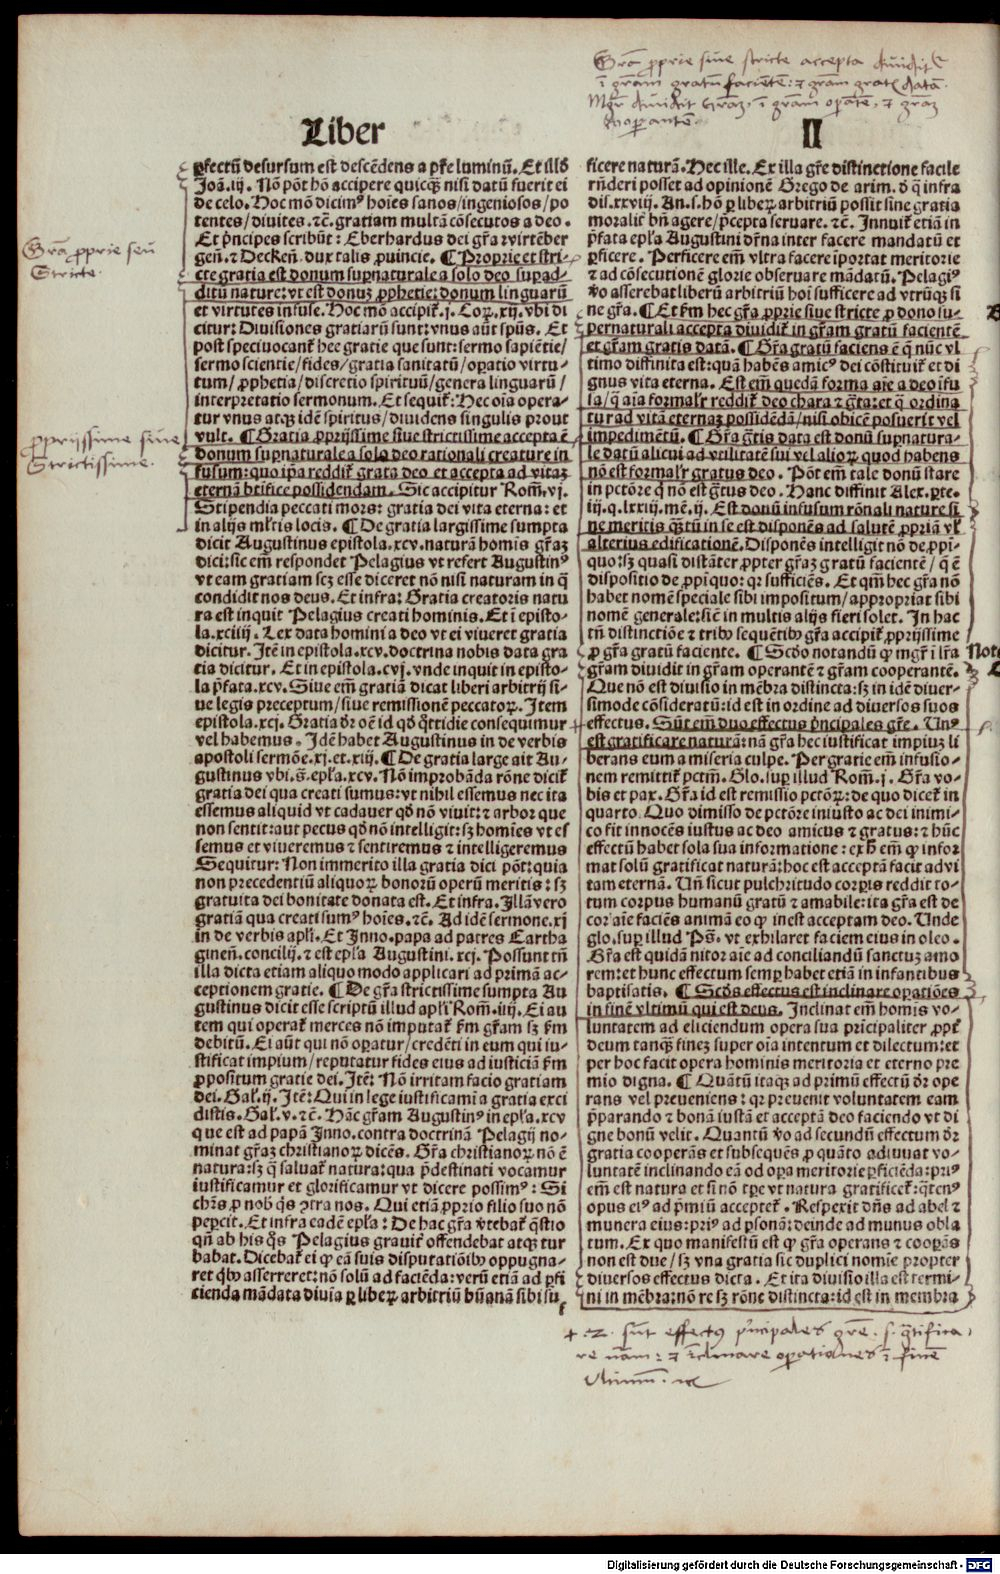 Gr̃a ꝓprie siue stricte accepta diuidit᷑
ĩ gr̃am gratũ faciẽtẽ: ⁊ gr̃am gratis datã.
Mgr̃ diuidit gr̃az, ĩ gr̃am oꝑãtẽ, ⁊ gr̃az
cooꝑantẽ.
Liber
II
ꝑfectũ desursum est descẽdens a pr̃e luminũ. Et illđ
Joã. iij. Nõ põt hõ accipere quicꝙ nisi datũ fuerit ei
de celo. Hoc mõ dicimꝰ hoĩes sanos/ingeniosos/po
tentes/diuites. ⁊c̃. gratiam multã cõsecutos a deo.
Et p̃ncipes scribũt: Eberhardus dei gr̃a ꝟirtẽber
geñ. ⁊ Decken̄. dux talis ꝓuincie. ¶ Proprie et stri-
cte gratia est donum sup̃naturale a solo deo suꝑad-
ditũ nature: vt est donuz ꝓphetie: donum linguarũ
et virtutes infuse. Hoc mõ accipit᷑. j. Coꝝ. xij. vbi di
citur: Diuisiones gratiarũ sunt: vnus aũt spũs. Et
post speciuocant᷑ hec gratie que sunt: sermo sapiẽtie/
sermo scientie/fides/gratia sanitatũ/oꝑatio virtu-
tum/ꝓphetia/discretio spirituũ/genera linguarũ/
interpretatio sermonum. Et sequit᷑: Hec oĩa opera-
tur vnus atqꝫ idẽ spiritus/diuidens singulis prout
vult. ¶ Gratia ꝓprijssime siue strictissime accepta ẽ
donum sup̃naturale a solo deo rationali creature in
fusum: quo ip̃a reddit᷑ grata deo et accepta ad vitaz
eternã btĩfice possidendam. Sic accipitur Rom̃. vj.
Stipendia peccati mors: gratia dei vita eterna: et
in alijs ml̃tis locis. ¶ De gratia largissime sumpta
dicit Augustinus epistola. xcv. naturã homĩs gr̃az
dici: sic em̃ respondet Pelagius vt refert Augustinꝰ
vt eam gratiam scꝫ esse diceret nõ nisi naturam in q̃
condidit nos deus. Et infra: Gratia creatoris natu
ra est inquit Pelagius creati hominis. Et ĩ episto-
la. xciiij. Lex data homini a deo vt ei viueret gratia
dicitur. Itẽ in epistola. xcv. doctrina nobis data gra
tia dicitur. Et in epistola. cvj. vnde inquit in episto-
la p̃fata. xcv. Siue em̃ gratiã dicat liberi arbitrij si-
ue legis preceptum/siue remissionẽ peccatoꝝ. Item
epistola. xcj. Gratia dr̃ oẽ id qđ q̃ttidie consequimur
vel habemus. Idẽ habet Augustinus in de verbis
apostoli sermõe. xj. et. xij. ¶ De gratia large ait Au-
gustinus vbi. s̃. ep̃la. xcv. Nõ improbãda rõne dicit᷑
gratia dei qua creati sumus: vt nihil essemus nec ita
essemus aliquid vt cadauer qđ nõ viuit: ⁊ arbor que
non sentit: aut pecus qđ nõ intelligit: sꝫ homĩes vt es
semus et viueremus ⁊ sentiremus ⁊ intelligeremus
Sequitur: Non immerito illa gratia dici põt: quia
non precedentiũ aliquoꝝ bonorũ operũ meritis: sꝫ
gratuita dei bonitate donata est. Et infra. Illã vero
gratiã qua creati sumꝰ hoĩes. ⁊c̃. Ad idẽ sermone. xj
in de verbis apl̃i. Et Inno. papa ad patres Cartha
gineñ. concilij. ⁊ est ep̃la Augustini. xcj. Possunt tñ
illa dicta etiam aliquo modo applicari ad primã ac-
ceptionem gratie. ¶ De gr̃a strictissime sumpta Au
gustinus dicit esse scriptũ illud apl̃i Rom̃. iiij. Ei au
tem qui operat᷑ merces nõ imputat᷑ ẜm gr̃am sꝫ ẜm
debitũ. Ei aũt qui nõ oꝑatur/credẽti in eum qui iu-
stificat impium/reputatur fides eius ad iusticiã ẜm
ꝓpositum gratie dei. Itẽ: Nõ irritam facio gratiam
dei. Gal̃. ij. Itẽ: Qui in lege iustificami a gratia exci
distis. Gal̃. v. ⁊c̃. Hãc gr̃am Augustinꝰ in ep̃la. xcv
que est ad papã Inno. contra doctrinã Pelagij no-
minat gr̃az christianoꝝ dicẽs. Gr̃a christianoꝝ nõ ẽ
natura: sꝫ q̃ saluat᷑ natura: qua p̃destinati vocamur
iustificamur et glorificamur vt dicere possimꝰ: Si
chr̃s ꝓ nob q̃s ꝯtra nos. Qui etiã ꝓprio filio suo nõ
peꝑcit. Et infra eadẽ ep̃la: De hac gr̃a ꝟtebat᷑ q̃stio
qñ ab his q̃s Pelagius grauit᷑ offendebat atqꝫ tur
babat. Dicebat᷑ ei ꝙ eã suis disputatiõibꝰ oppugna-
ret qͥbꝰ asserreret: nõ solũ ad faciẽda: verũ etiã ad ꝑfi
cienda mãdata diuia ꝑ liberꝝ arbitriũ hũanã sibi suf
ficere naturã. Hec ille. Ex illa gr̃e distinctione facile
rñderi posset ad opinionẽ Grego de arim. đ q̃ infra
dis. xxviij. An. s. hõ ꝑ liberꝝ arbitriũ possit sine gratia
moralit᷑ bñ agere/p̃cepta seruare. ⁊c̃. Innuit᷑ etiã in
p̃fata ep̃la Augustini dr̃na inter facere mandatũ et
ꝑficere. Perficere em̃ vltra facere iportat meritorie
⁊ ad cõsecutionẽ glorie obseruare mãdatũ. Pelagiꝰ
ꝟo asserebat liberũ arbitriũ hoĩ sufficere ad vtrũqꝫ si
ne gr̃a. ¶ Et ẜm hec gr̃a ꝓprie siue stricte ꝓ dono su-
pernaturali accepta diuidit᷑ in gr̃am gratũ facientẽ
et gr̃am gratis datã. ¶ Gr̃a gratũ faciens ẽ q̃ nũc vl
timo diffinita est: quã habẽs amicꝰ dei cõstituit᷑ et di
gnus vita eterna. Est em̃ quedã forma aĩe a deo ĩfu
sa/q̃ aĩa formalr̃ reddit᷑ deo chara ⁊ g̃ta: et q̃ ordina
tur ad vitã eternaz possidẽdã/nisi obicẽ posuerit vel
impedimẽtũ. ¶ Gr̃a g̃tis data est donũ sup̃natura-
le datũ alicui ad vtilitatẽ sui vel alioꝝ quod habens
nõ est formalr̃ gratus deo. Põt em̃ tale donũ stare
in pctõre q̃ nõ est g̃tus deo. Hanc diffinit Alex. ꝑte.
iij. q. lxxiij. mẽ. ij. Est donũ infusum rõnali nature si
ne meritis q̃tũ in se est disponẽs ad salutẽ ꝓpriã vl̃
alterius edificationẽ. Disponẽs intelligit nõ de ꝓpi-
quo: sꝫ quasi distãter ꝓpter gr̃az gratũ facientẽ/q̃ ẽ
dispositio de ꝓpĩquo: qꝛ sufficiẽs. Et qm̃ hec gr̃a nõ
habet nomẽ speciale sibi impositum/appropriat sibi
nomẽ generale: siẽ in multis alijs fieri solet. In hac
tñ distinctiõe ⁊ tribꝰ sequẽtibꝰ gr̃a accipit᷑ ꝓprijssime
ꝓ gr̃a gratũ faciente. ¶ Scđo notandũ ꝙ mgr̃ ĩ lr̃a
gr̃am diuidit in gr̃am operantẽ ⁊ gr̃am cooperantẽ.
Que nõ est diuisio in mẽbra distincta: sꝫ in idẽ diuer-
simode cõsideratũ: id est in ordine ad diuersos suos
effectus. Sũt em̃ duo effectus p̃ncipales gr̃e. Unꝰ
est gratificare naturã: nã gr̃a hec iustificat impiuꝫ li
berans eum a miseria culpe. Per gratie em̃ infusio-
nem remittit᷑ pctm̃. Glo. suꝑ illud Rom̃. j. Gr̃a vo-
bis et pax. Gr̃a id est remissio pctõꝝ: de quo dicet᷑ in
quarto. Quo dimisso de pctõre iniusto ac dei inimi-
co fit innocẽs iustus ac deo amicus ⁊ gratus: ⁊ hũc
effectũ habet sola sua informatione: ex h̃ em̃ ꝙ infor
mat solũ gratificat naturã: hoc est acceptã facit ad vi
tam eternã. Uñ sicut pulchritudo corꝑis reddit to-
tum corpus humanũ gratũ ⁊ amabile: ita gr̃a est de
cor aĩe faciẽs animã eo ꝙ inest acceptam deo. Unde
glo. suꝑ illud Ps̃. vt exhilaret faciem eius in oleo.
Gr̃a est quidã nitor aĩe ad conciliandũ sanctuꝫ amo
rem: et hunc effectum semꝑ habet etiã in infantibus
baptisatis. ¶ Scđs effectus est inclinare oꝑatiões
in finẽ vltimũ qui est deus. Inclinat em̃ homĩs vo-
luntatem ad eliciendum opera sua prĩcipaliter ꝓpt᷑
deum tanꝗ̃ finez super oĩa intentum et dilectum: et
per hoc facit opera hominis meritoria et eterno pre
mio digna. ¶ Quãtũ itaqꝫ ad primũ effectũ dr̃ ope
rans vel preueniens: qꝛ preuenit voluntatem eam
p̃parando ⁊ bonã iustã et acceptã deo faciendo vt di
gne bonũ velit. Quantũ ꝟo ad secundũ effectum dr̃
gratia cooperãs et subsequẽs ꝓ quãto adiuuat vo-
luntatẽ inclinando eã ad oꝑa meritorie ꝑficiẽda: priꝰ
em̃ est natura et si nõ tꝑe vt natura gratificet᷑: q̃tenꝰ
opus eiꝰ ad p̃miũ acceptet᷑. Respexit dñs ad abel ⁊
munera eius: priꝰ ad ꝑsonã: deinde ad munus obla
tum. Ex quo manifestũ est ꝙ gr̃a operans ⁊ cooꝑãs
non est due/sꝫ vna gratia sic duplici nomĩe propter
diuersos effectus dicta. Et ita diuisio illa est termi-
ni in mẽbra: nõ re sꝫ rõne distincta: id est in membra
Gr̃a ꝓprie seũ
Stricte.
ꝓprijssime siue
Strictissime.
Note
+ .2. sũt effectꝰ p̃ncipales gr̃e. s. g̃tifica-
re nãm: ⁊ ĩclinare oꝑationes ĩ finẽ
vltimũ. ⁊c̃
Digitalisierung gefördert durch die Deutsche Forschungsgemeinschaft - DFG